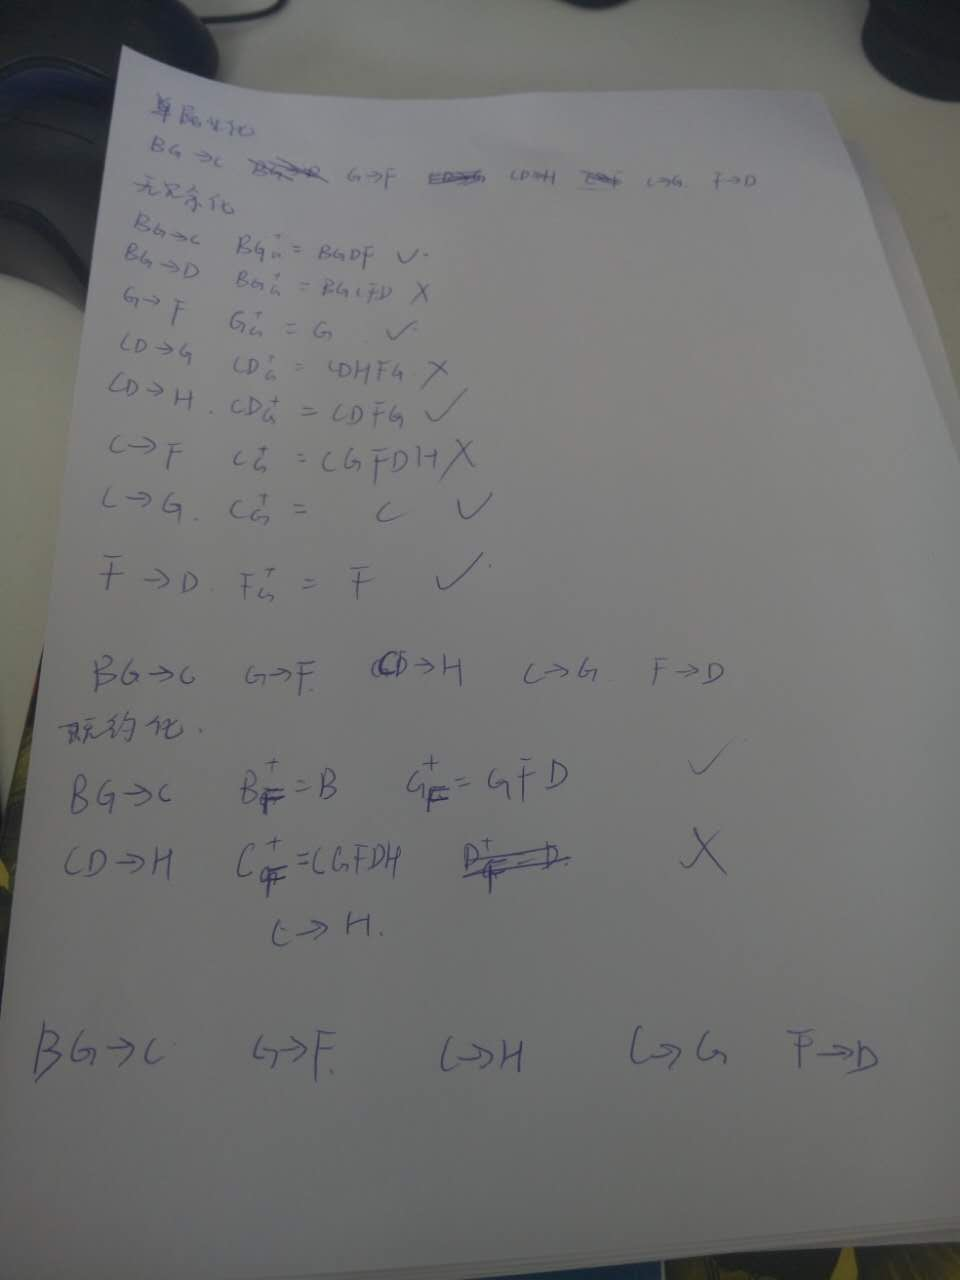 单BG化
BG→C BG→D G→F CD→G CD→H C→F C→G F→D
无冗余化
BG→C BG⁺G = BGDF ✓
BG→D BG⁺G = BGCFD X
G→F G⁺G = G ✓
CD→G CD⁺G = CDHFG X
CD→H. CD⁺G = CDFG ✓
C→F C⁺G = CGFDH X
C→G. C⁺G = C ✓
F→D. F⁺G = F ✓
BG→C G→F. CD→H C→G. F→D
既约化.
BG→C B⁺F=B G⁺F=GFD ✓
CD→H C⁺F=CGFDH D⁺F=D X
C→H.
BG→C G→F. C→H C→G F→D